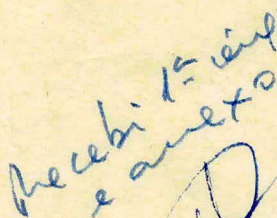 Recebi 1ª
e anexo